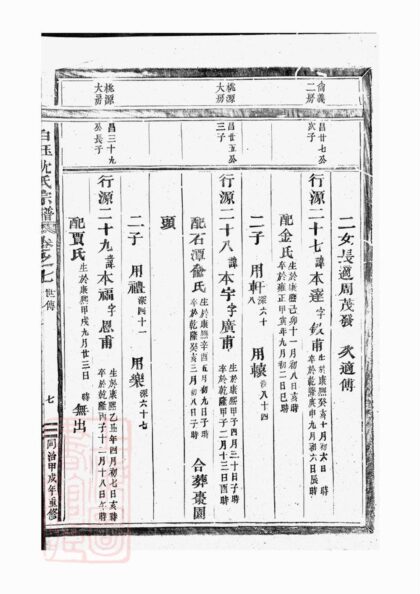 二女長適周茂發 次適傅
倫義二房
昌廿七公次子
行源二十七諱本達字毅甫 生於康熙癸亥十月初六日 時 卒於乾隆庚申九月初六日辰時
配金氏 生於康熙己卯十一月初八日亥時 卒於雍正甲寅年九月初二日巳時
二子 用軒 深六十八 用轅 深八十四
桃源大房
昌廿五公三子
行源二十八諱本宇字廣甫 生於康熙甲子四月三十日子時 卒於乾隆甲子二月十三日酉時
配石潭俞氏 生於康熙辛酉五月初九日子時 卒於乾隆癸亥三月初八日子時 合葬棗園
頭
二子 用禮 深四十一 用樂 深六十七
桃源大房
昌三十九公長子
行源二十九諱本福字恩甫 生於康熙乙丑年四月初七日亥時 卒於乾隆丙子十二月十八日午時
配賈氏 生於康熙甲戌九月廿三日 時 無出
白玉沈氏宗譜 卷之七 世傳
七
同治甲戌年重修